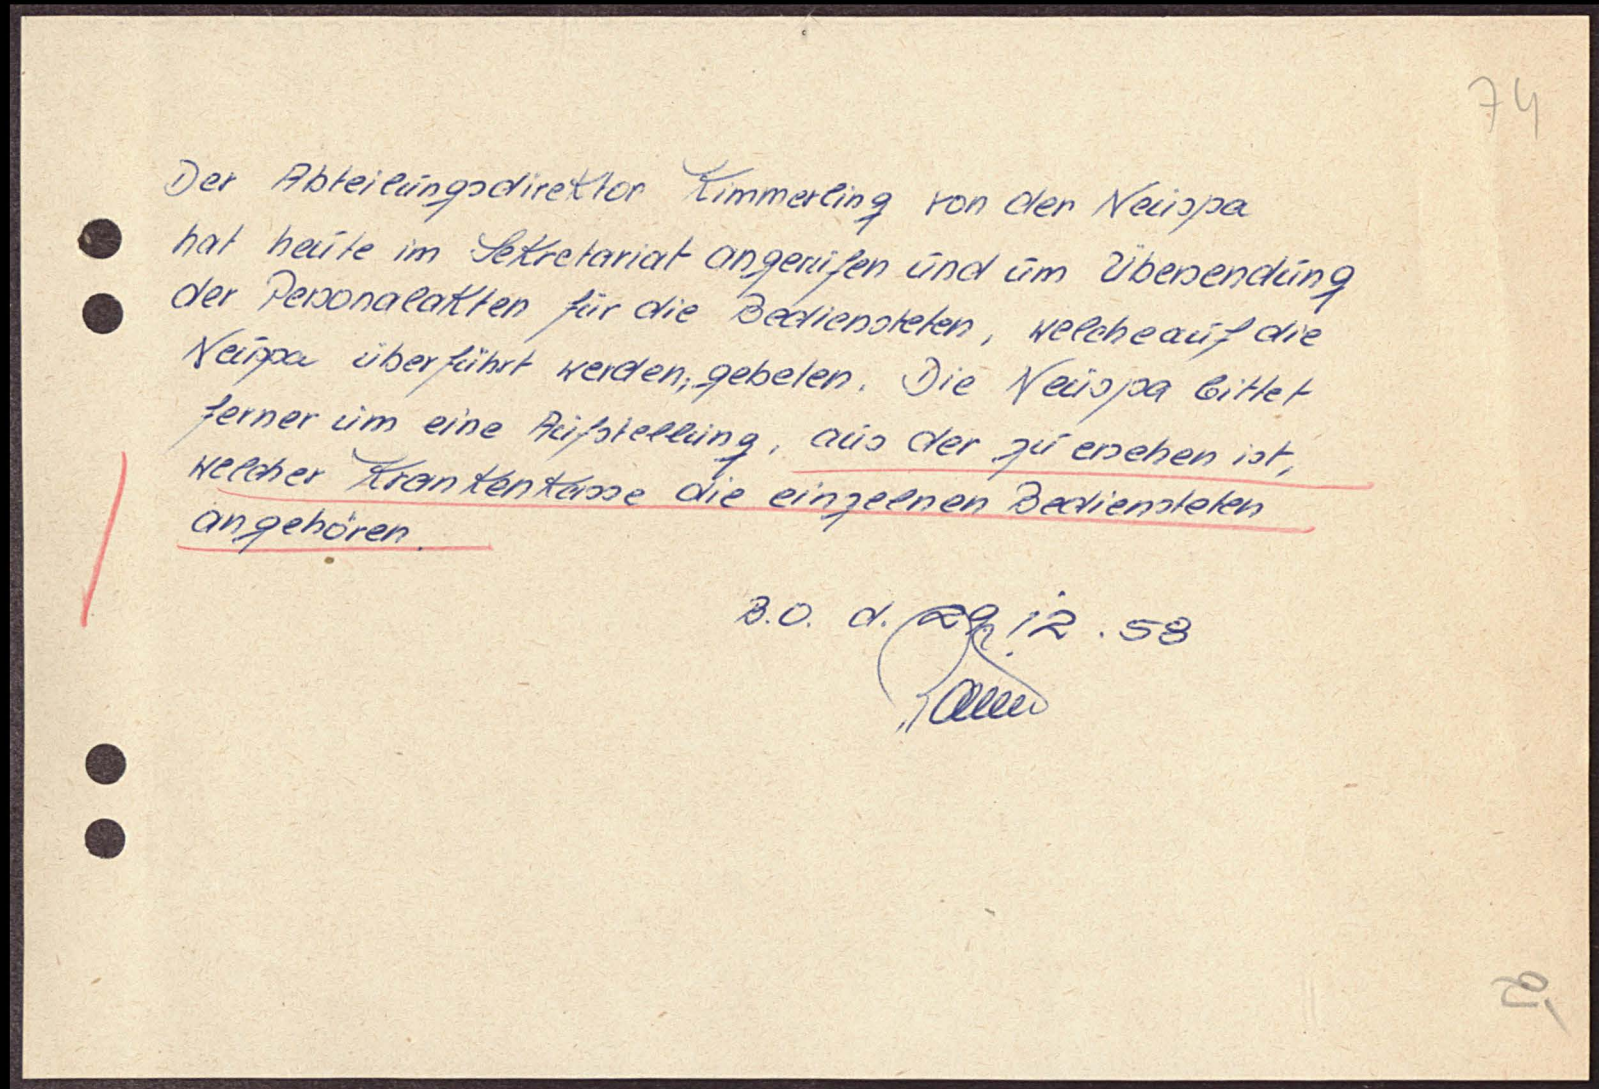 74
Der Abteilungsdirektor Kimmerling von der Neuspa
hat heute im Sekretariat angerufen und um Übersendung
der Personalakten für die Bediensteten, welche auf die
Neuspa überführt werden, gebeten. Die Neuspa bittet
ferner um eine Aufstellung, aus der zu ersehen ist,
welcher Krankenkasse die einzelnen Bediensteten
angehören.
B.O. d. 29.12.58